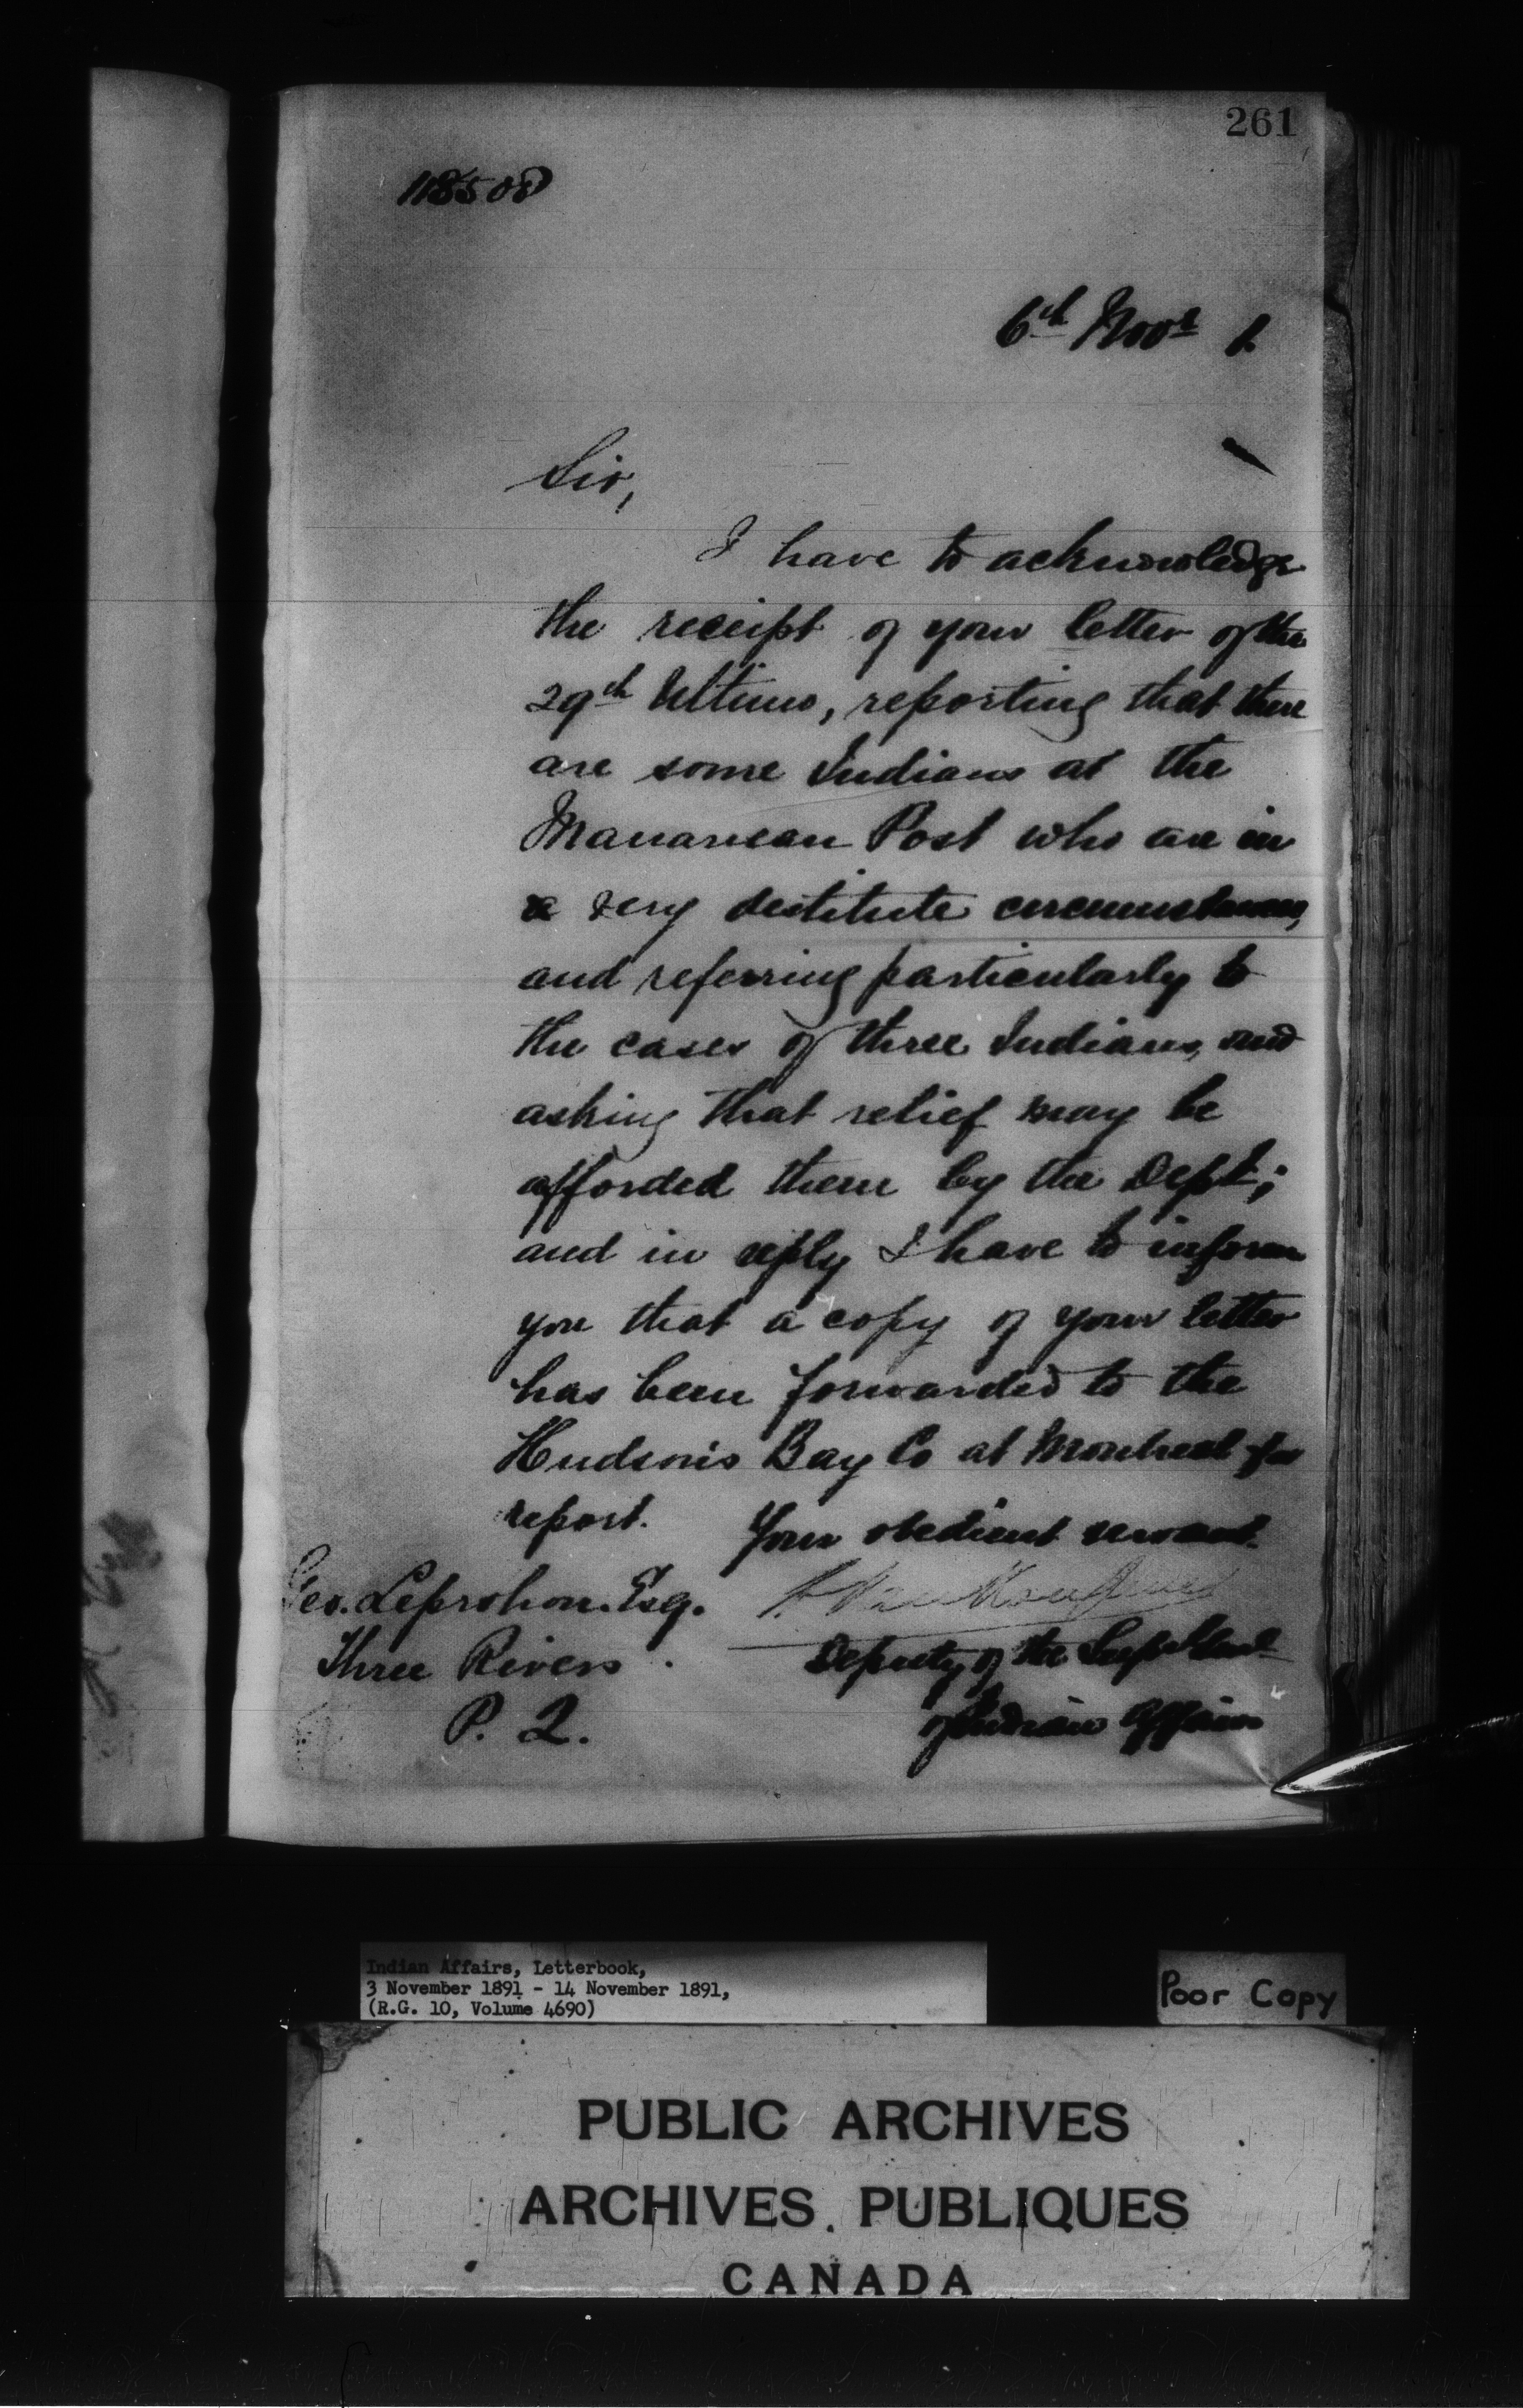 261
118508
6th Novr 1.
Sir,
I have to acknowledge
the receipt of your letter of the
29th Ultimo, reporting that there
are some Indians at the
Post who are in
a very destitute circumstances,
and referring particularly to
the cases of three Indians, and
asking that relief may be
afforded them by the Dept;
and in reply I have to inform
you that a copy of your letter
has been forwarded to the
Hudson's Bay Co at Montreal for
report.
Your obedient servant.
L. VanKoughnet
Geo. Leprohon. Esq.
Deputy of the Supt Genl
Three Rivers.
of Indian Affairs
P. Q.
Indian Affairs, Letterbook,
3 November 1891 - 14 November 1891,
(R.G. 10, Volume 4690)
Poor Copy
PUBLIC ARCHIVES
ARCHIVES PUBLIQUES
CANADA